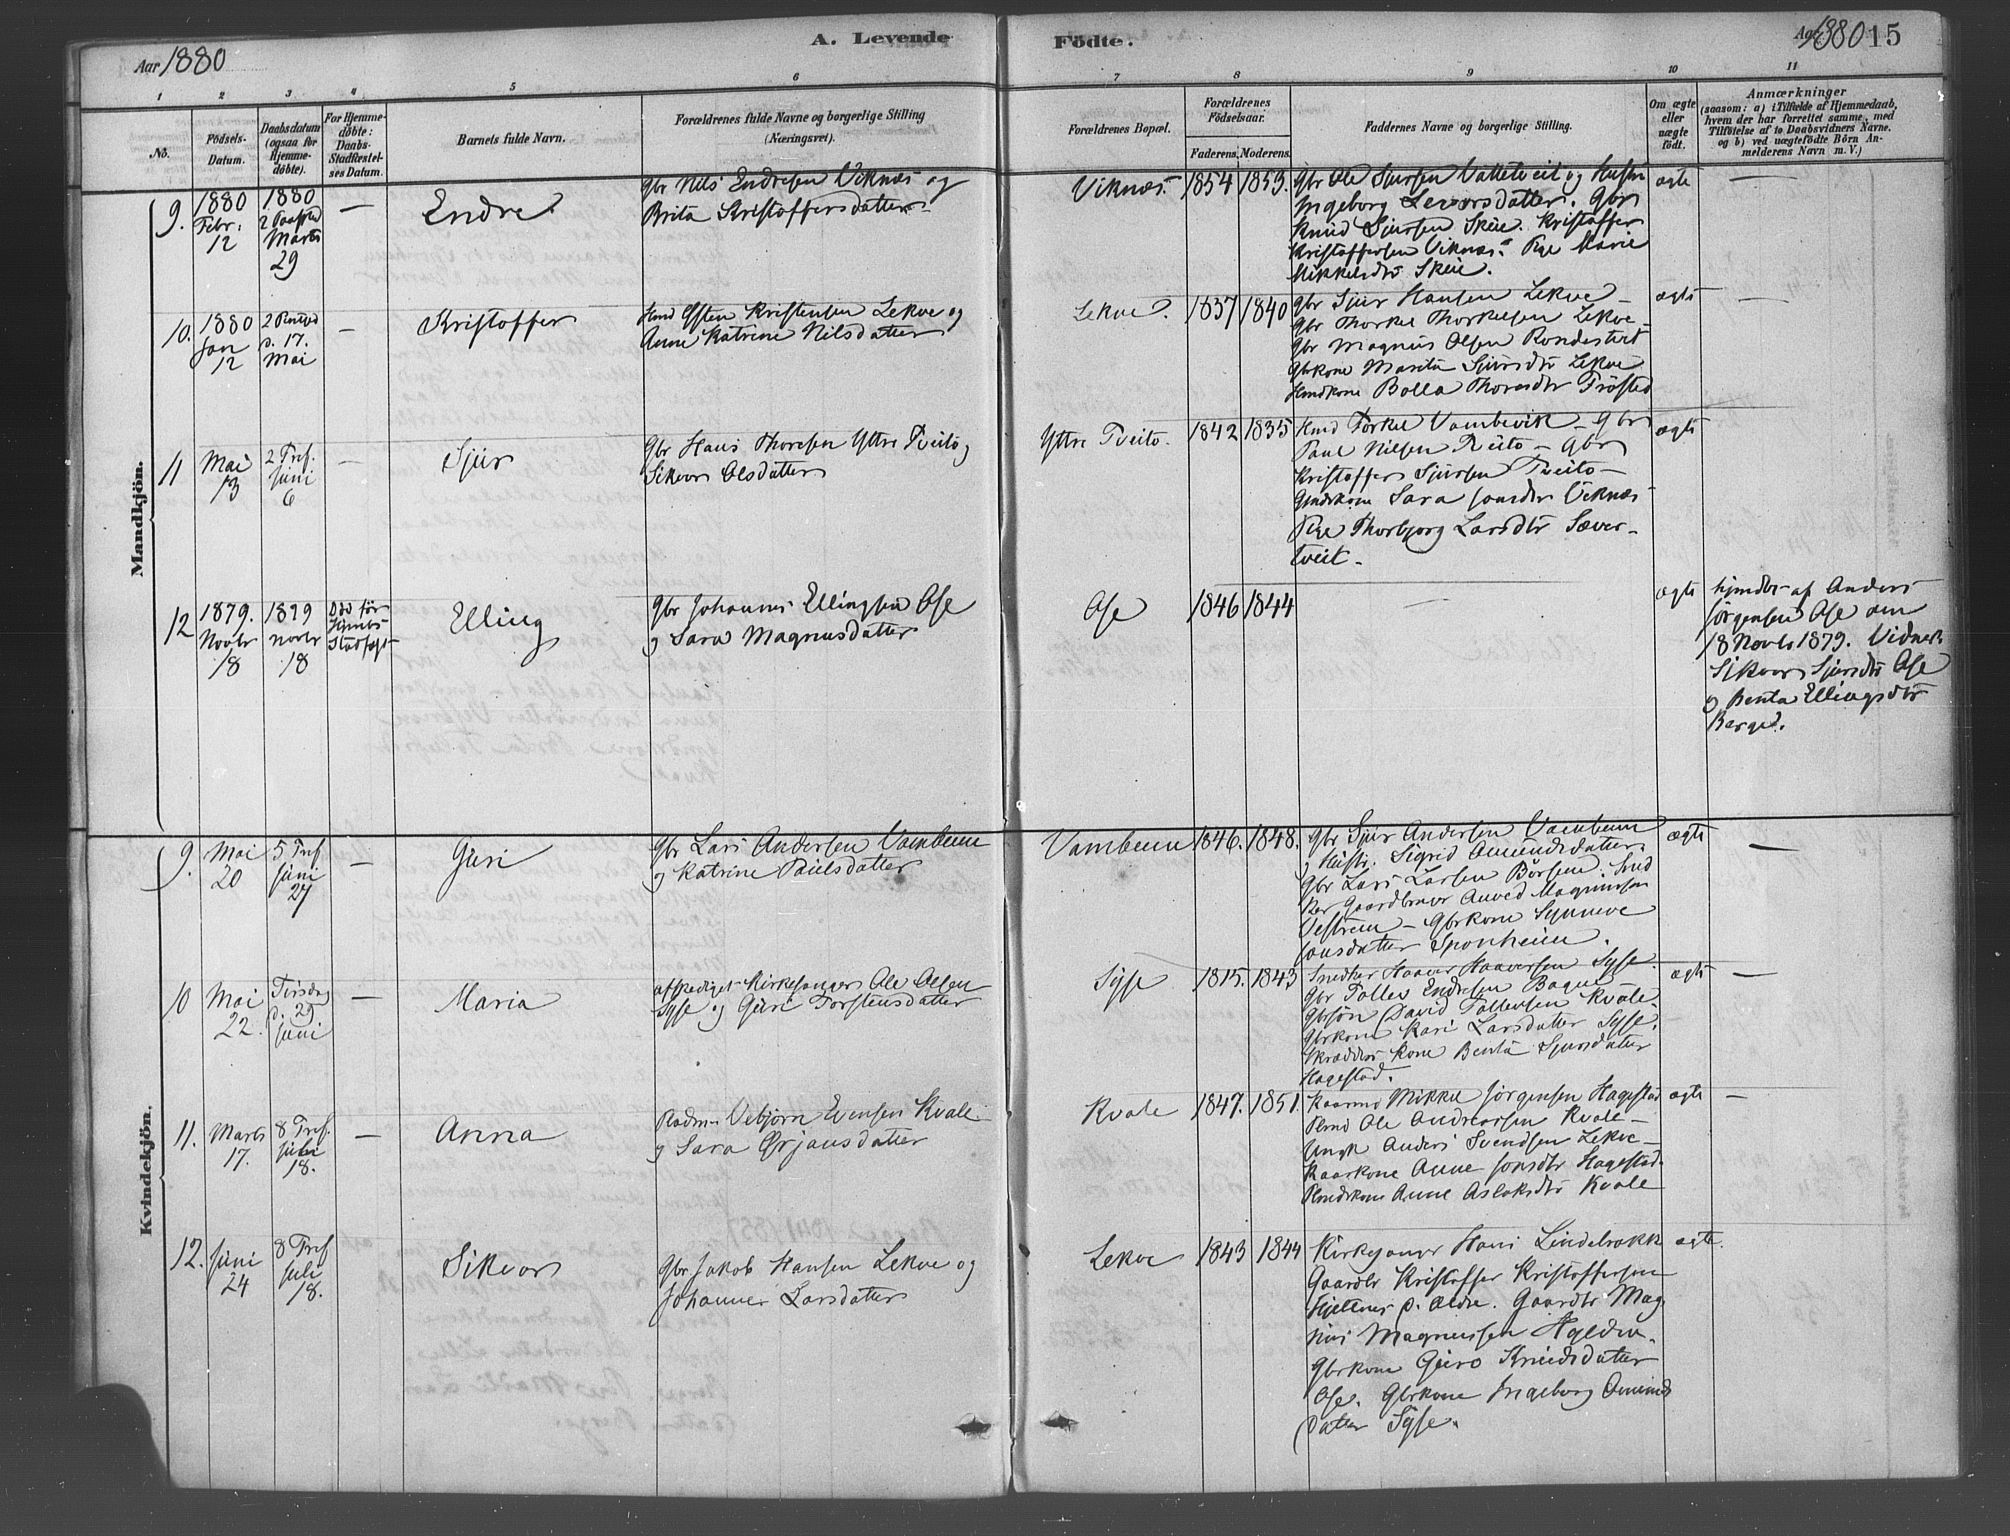 Aar 1880
A. Levende
Födte.
Aar 1880 15
1 2 3 4 5 6 7 8 9 10 11
No.
Födsels-
Datum.
Daabsdatum
(ogsaa for
Hjemme-
döbte).
For Hjemme-
döbte:
Daabs-
Stadfæstel-
ses Datum.
Barnets fulde Navn.
Forældrenes fulde Navne og borgerlige Stilling
(Næringsvei).
Forældrenes Bopæl.
Forældrenes
Födselsaar.
Faderens. Moderens.
Faddernes Navne og borgerlige Stilling.
Om ægte
eller
uægte
födt.
Anmærkninger
(saasom: a) i Tilfælde af Hjemmedaab,
hvem der har forrettet samme, med
Tilföielse af to Daabsvidners Navne.
og b) ved uægtefödte Börn An-
melderens Navn m. V.)
Mandkjön.
9.
1880
Febr.
12
1880
2 Paaskd
Marts
29
—
Endre
Gbr Nils Endresen Viknæs og
Brita Kristoffersdatter
Viknæs
1854 1853.
Gbr Ole Sjursen Valletveit og Hustru
Ingeborg Leversdatter. Gbr
Knud Sjursen Skeie. Kristoffer
Kristoffersen Viknæs. Pge Marie
Mikkelsdtr Skeie.
ægte
—
10.
1880
Jan
12
2 Pintsed
d. 17.
Mai
—
Kristoffer
Hmd Østen Kristensen Lekve og
Anne Katrine Nilsdatter
Lekve
1837 1840
Gbr Sjur Hansen Lekve —
Gbr Thorkel Thorkelsen Lekve —
Gbr Magnus Olsen Rondestvet
Gbrkone Marita Sjursdtr Lekve
Hmdkone Bolla Thoresdtr Tröstad
ægte
—
11
Mai
13
2 Tref.
Juni
6
—
Sjur
Gbr Hans Thoresen Yttre Tveito og
Sikvor Olsdatter
Yttre Tveito.
1842 1835
Hmd Torkel Vambevik — Gbr
Paul Nilsen Tveito — Gbr
Kristoffer Sjursen Tveito —
Gmdskone Sara Jonsdtr Viknæs
Pge Thorbjorg Larsdtr Sæver-
tveit.
ægte
12
1879.
Novbr
18
1879
novbr
18
Död för
Stadfæst
Elling
Gbr Johannes Ellingsen Ose
og Sara Magnusdatter
Ose
1846 1844
—
ægte
hjmdbt af Anders
Jørgensen Ose den
18 Novbr 1879. Vidner
Sikvor Sjursdtr Ose
og Benta Ellingsdtr
Berge.
Kvindekjön.
9.
Mai
20
5 Tref
Juni
27
—
Guri
Gbr Lars Andersen Vambeim
og Katrine Paulsdatter
Vambeim
1846. 1848.
Gbr Sjur Andersen Vambeim
og Hustr. Sigrid Amundsdatter.
Gbr Lars Larsen Börsem. Sned
ker Gaardbruer Anved Magnussen
Vestrem — Gbrkone Synneve
Jonsdatter Sponheim.
ægte
—
10
Mai
22.
Tirsdag
d. 29
Juni
—
Maria
afskediget Kirkesanger Ole Olsen
Syse og Guri Torstensdatter
Syse
1815. 1843
Snedker Haaver Haaversen Syse.
Gbr Tollev Endresen Bagne
Gbrsön David Tollevsen Kvale
Gbrkone Kari Larsdatter Syse.
Skrædders kone Benta Sjursdatter
Hagestad.
ægte
—
11.
Marts
17.
8 Tref.
Juli
18.
—
Anna
Vebjørn Evensen Kvale
og Sara Ørjansdatter
Kvale
1847. 1851.
Kaarmd Mikkel Jörgensen Hagestad
Plmd Ole Andreassen Kvale —
Ungk Anders Svendsen Lekve —
Kaarkone Anne Jonsdtr Hagestad.
Plmdskone Anne Aslaksdtr Kvale
ægte
—
12.
Juni
24
8 Tref
Juli
18.
Sikvor
Gbr Jakob Hansen Lekve og
Johanne Larsdatter
Lekve
1843 1844
Kirkesanger Hans Lindebrække
Gaardbr Kristoffer Kristoffersen
Hjeltnes d. ældre. Gaardbr Mag
nus Magnussen Hylden.
Gbrkone Guro Knudsdatter
Ose. Gbrkone Ingeborg Amunds
datter Syse.
ægte.